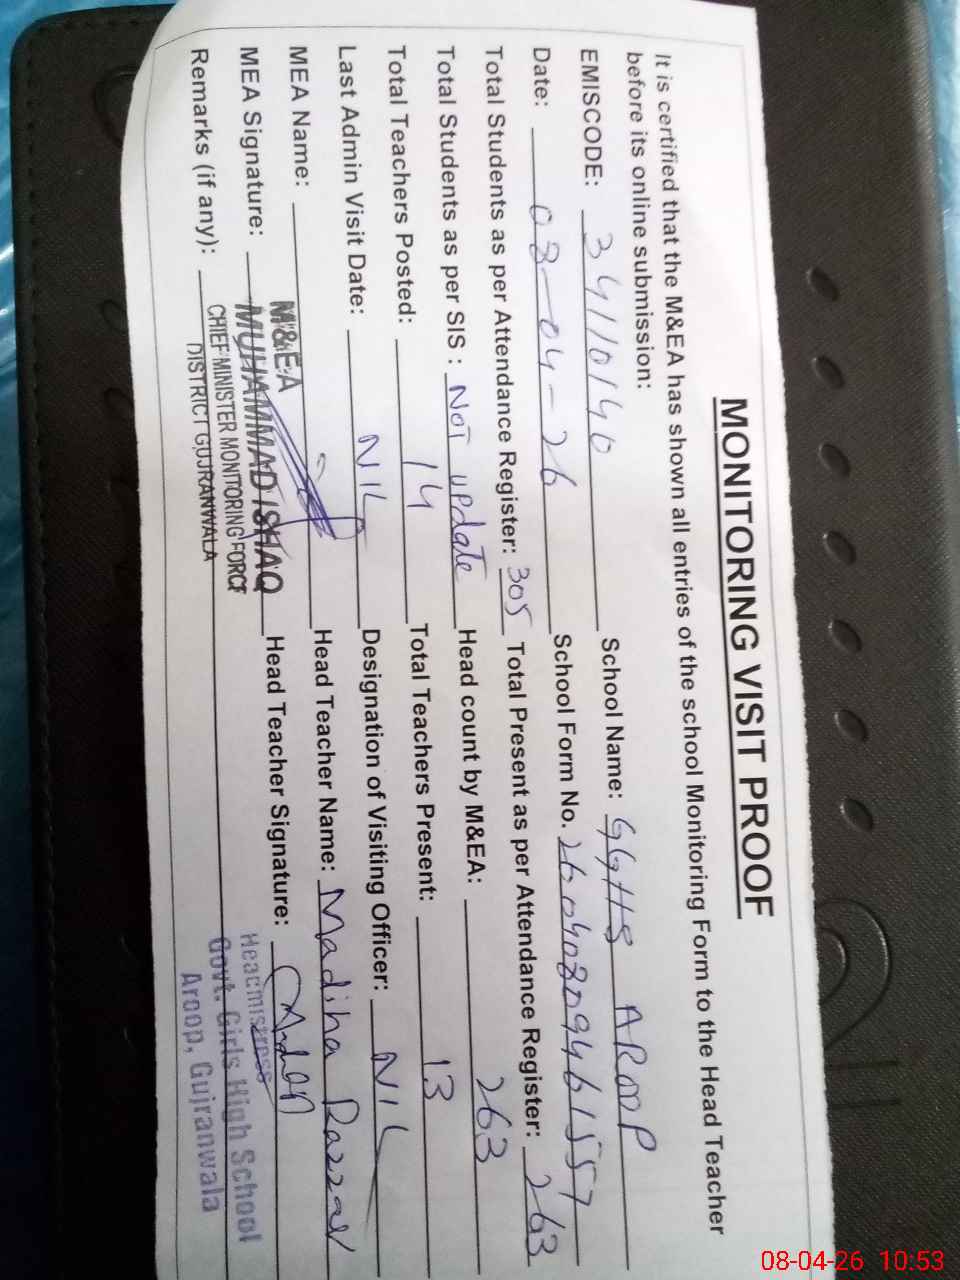 MONITORING VISIT PROOF
It is certified that the M&EA has shown all entries of the school Monitoring Form to the Head Teacher
before its online submission:
EMISCODE: 34110140 School Name: GGHS AROOP
Date: 08-04-26 School Form No. 26040809461557
Total Students as per Attendance Register: 305 Total Present as per Attendance Register: 263
Total Students as per SIS : Not update Head count by M&EA: 263
Total Teachers Posted: 14 Total Teachers Present: 13
Last Admin Visit Date: NIL Designation of Visiting Officer: NIL
MEA Name: Head Teacher Name: Madiha Razzaq
MEA Signature: Head Teacher Signature:
Remarks (if any):
M&EA
MUHAMMAD ISHAQ
CHIEF MINISTER MONITORING FORCE
DISTRICT GUJRANWALA
Headmistress
Govt. Girls High School
Aroop, Gujranwala
08-04-26 10:53